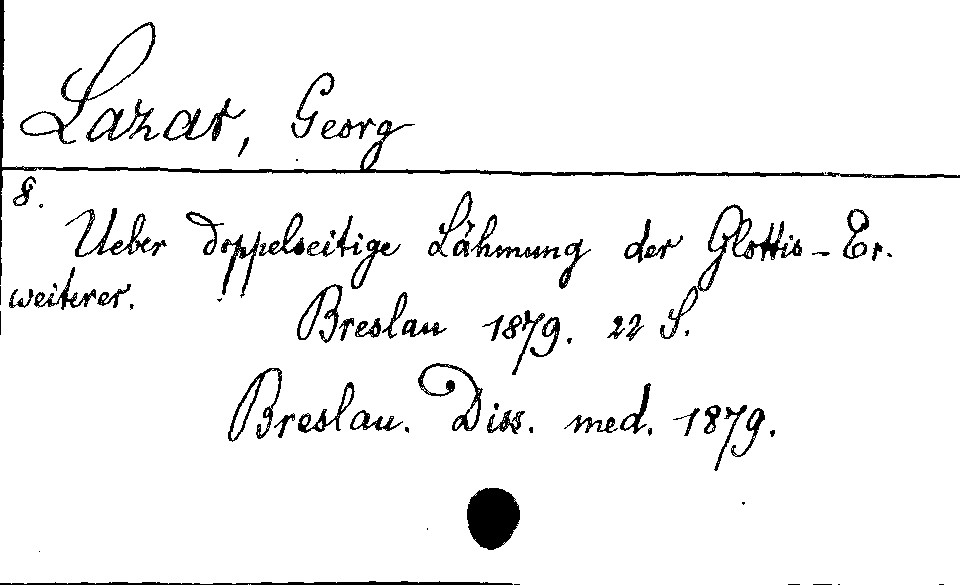 Lazar, Georg
8.
Ueber doppelseitige Lähmung der Glottis-Er.
weiterer.
Breslau 1879. 22 S.
Breslau. Diss. med. 1879.